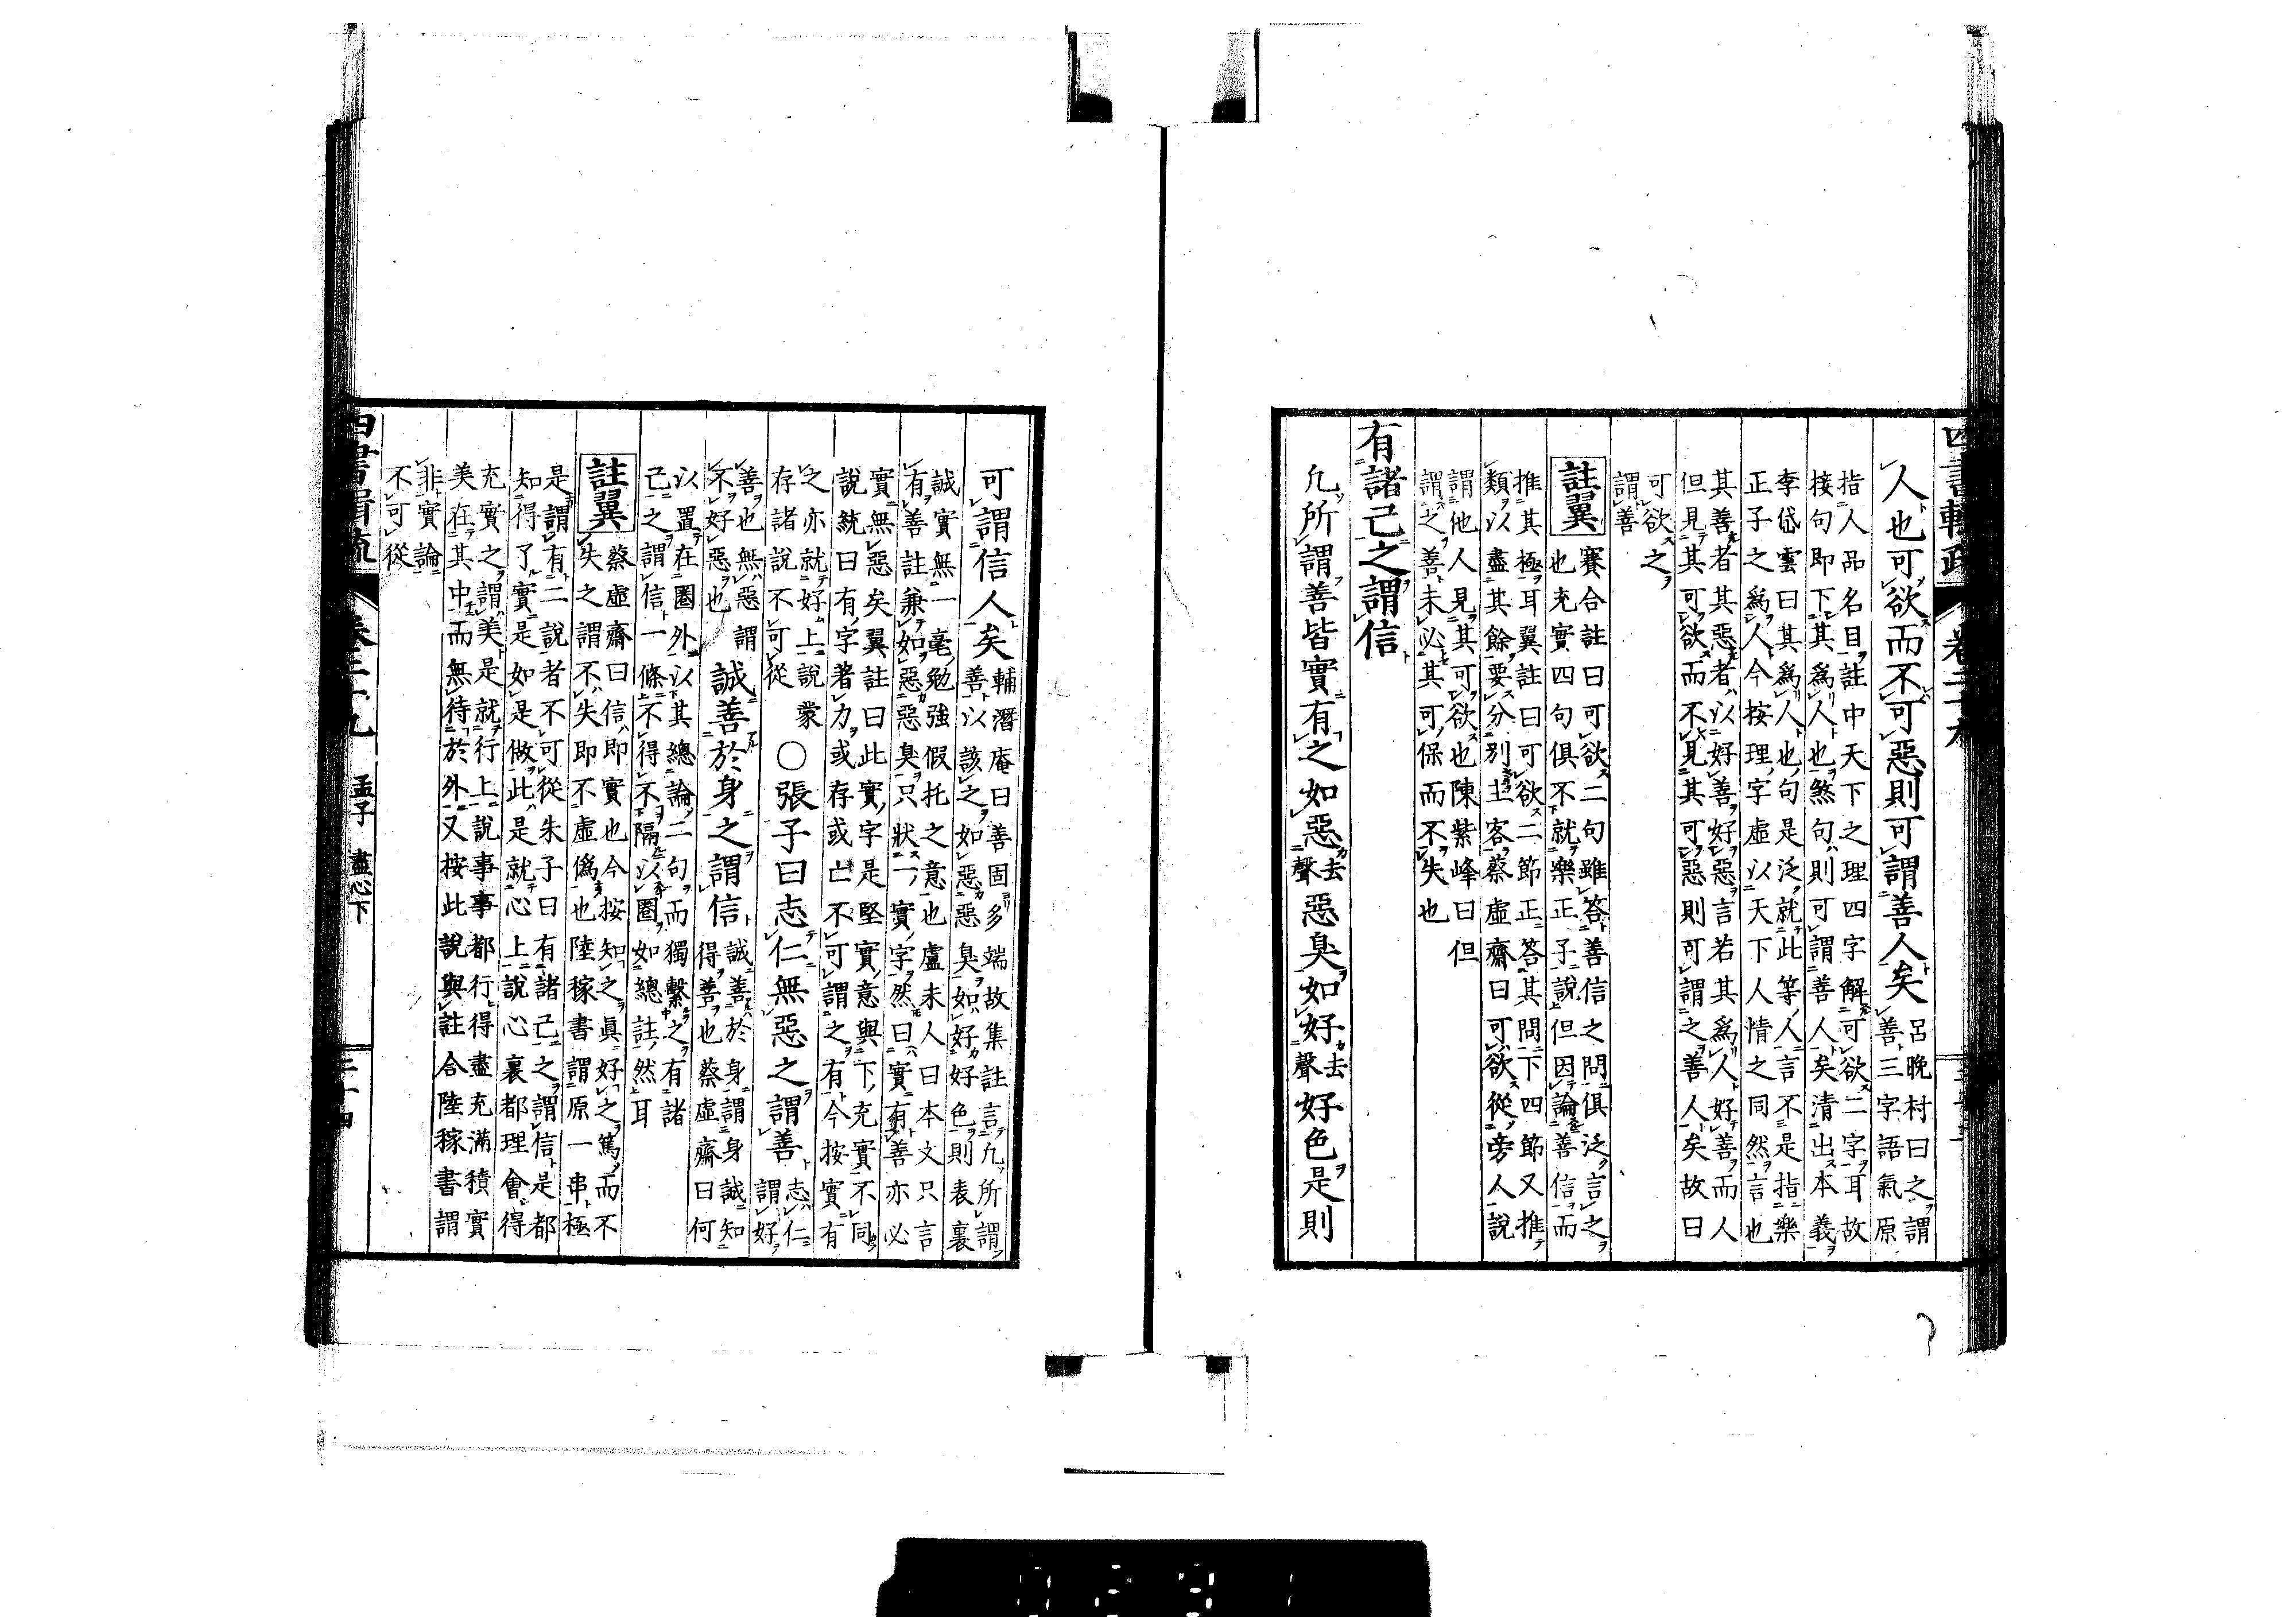 四書輯疏 卷二十九
人也可欲而不可惡則可謂善人矣 呂晚村曰之謂
善三字語氣原
指人品名目註中天下之理四字解可欲二字耳故
接句即下其爲人也煞句則可謂善人矣清出本義
李岱雲曰其爲人也句是泛就此等人言不是指樂
正子之爲人今按理字虛以天下人情之同然言也
其善者其惡者以好善好惡言若其爲人好善而人
但見其可欲而不見其可惡則可謂之善人矣故曰
可欲之
謂善
註翼 賽合註曰可欲二句雖答善信之問俱泛言之
也充實四句俱不就樂正子說但因論善信而
推其極耳翼註曰可欲二節正答其問下四節又推
類以盡其餘要分別主客蔡虛齋曰可欲從旁人說
謂他人見其可欲也陳紫峰曰但
謂之善未必其可保而不失也
有諸己之謂信
凡所謂善皆實有之如惡去聲惡臭如好去聲好色是則
可謂信人矣 輔潛庵曰善固多端故集註言凡所謂
善以該之如惡惡臭如好好色則表裏
誠實無一毫勉強假托之意也盧未人曰本文只言
有善註兼如惡惡臭只狀一實字然曰實有善亦必
實無惡矣翼註曰此實字是堅實意與下充實不同
說統曰有字著力或存或亡不可謂之有今按實有
之亦就好上說蒙
存諸說不可從
○張子曰志仁無惡之謂善 志仁
謂好
善也無惡謂
不好惡也
誠善於身之謂信 誠善於身謂身誠知
得善也蔡虛齋曰何
以置在圈外以其總論二句而獨繫之有諸
己之謂信一條不得不隔以圈如總註然耳
註翼 蔡虛齋曰信即實也今按知之眞好之篤而不
失之謂不失即不虛僞也陸稼書謂原一串極
是謂有二說者不可從朱子曰有諸己之謂信是都
知得了實是如是做此是就心上說心裏都理會得
充實之謂美是就行上說事事都行得盡充滿積實
美在其中而無待於外又按此說與註合陸稼書謂
非實論
不可從
四書輯疏 卷二十九 孟子 盡心下